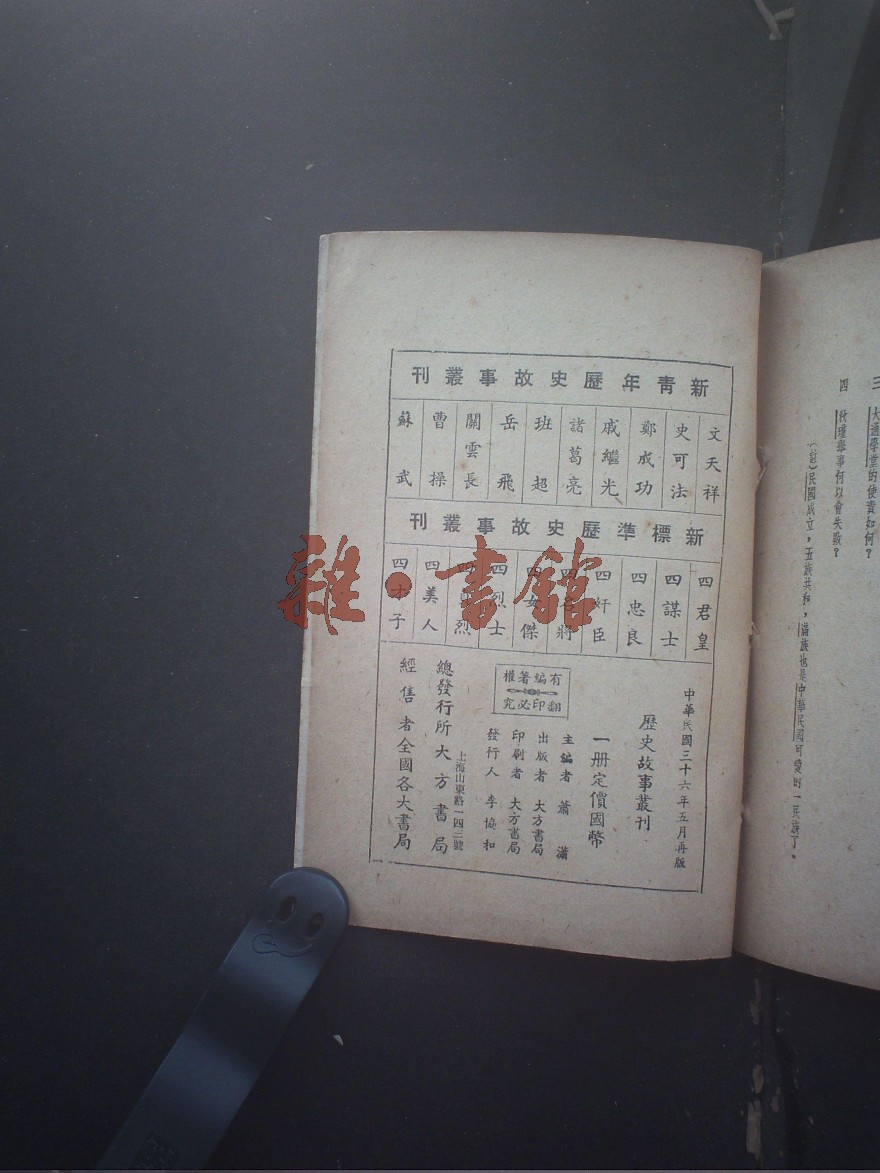 三
大通學堂的使責如何？
四 秋瑾舉事何以會失敗？
（註）民國成立，五族共和，滿族也是中華民國可愛的一民族了、
新青年歷史故事叢刊
文天祥
史可法
鄭成功
戚繼光
諸葛亮
班超
岳飛
關雲長
曹操
蘇武
新標準歷史故事叢刊
四君皇
四謀士
四忠良
四奸臣
四名將
四女傑
四烈士
烈
四美人
四才子
中華民國三十六年五月再版
歷史故事叢刊
一冊定價國幣
有編著權
翻印必究
主編者 蕭瀟
出版者 大方書局
印刷者 大方書局
發行人 李協和
上海山東路一四三號
總發行所大方書局
經售者全國各大書局
雜·書館